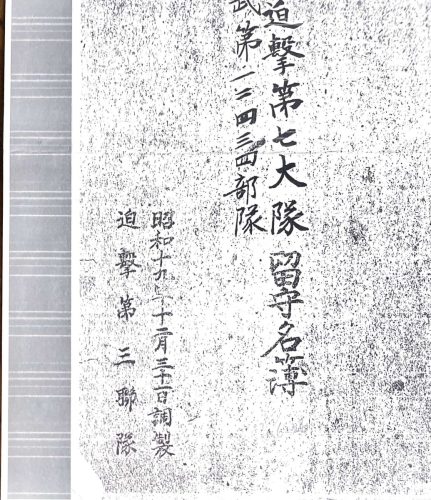 迫撃第七大隊 留守名簿
武第一二四三四部隊
昭和十九年十二月三十一日調製
迫撃第三聯隊